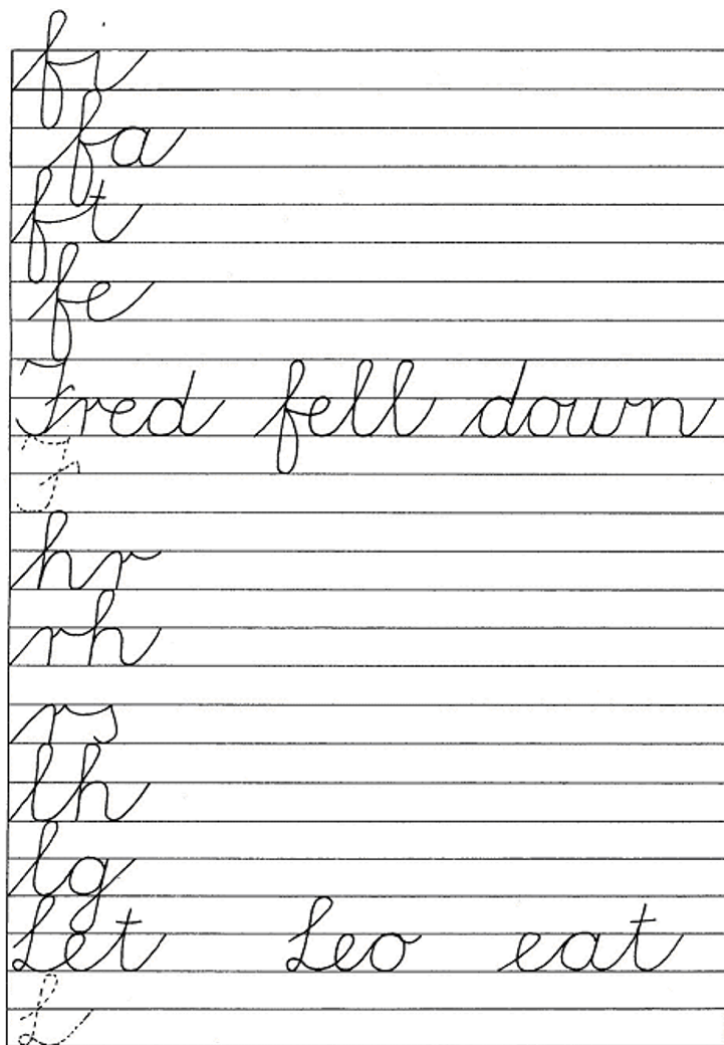 fr
fa
ft
fe
Fred fell down
F
hr
rh
rs
lh
lg
Let Leo eat
L